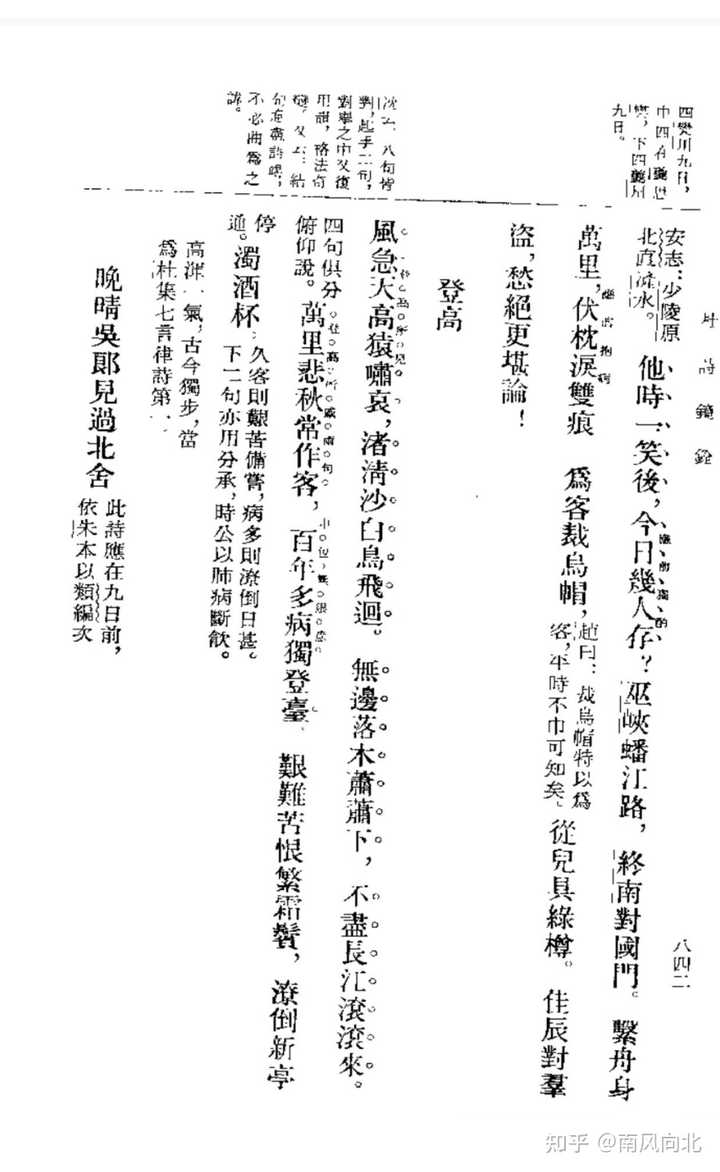 杜詩鏡銓
八四二
四樊川九日，
中四在夔思
樊，下四夔州
九日。
安志：少陵原
北直滻水。
他時一笑後，今日幾人存？巫峽蟠江路，終南對國門。繫舟身
萬里，伏枕淚雙痕 爲客裁烏帽，
趙曰：裁烏帽特以爲
客，平時不巾可知矣。
從兒具綠樽。佳辰對羣
盜，愁絕更堪論！
登高
對，起手二句，
對舉之中又復
用韻，格法奇
變。又云：結
句意盡語竭，
不必曲爲之
諱。
風急天高猿嘯哀，渚清沙白鳥飛迴。無邊落木蕭蕭下，不盡長江滾滾來。
四句俱分
俯仰說。
萬里悲秋常作客，百年多病獨登臺，艱難苦恨繁霜鬢，潦倒新亭
停
通。
濁酒杯。
久客則艱苦備嘗，病多則潦倒日甚。
下二句亦用分承，時公以肺病斷飲。
高渾一氣，古今獨步，當
爲杜集七言律詩第一。
晚晴吳郎見過北舍
此詩應在九日前，
依朱本以類編次
知乎 @南风向北